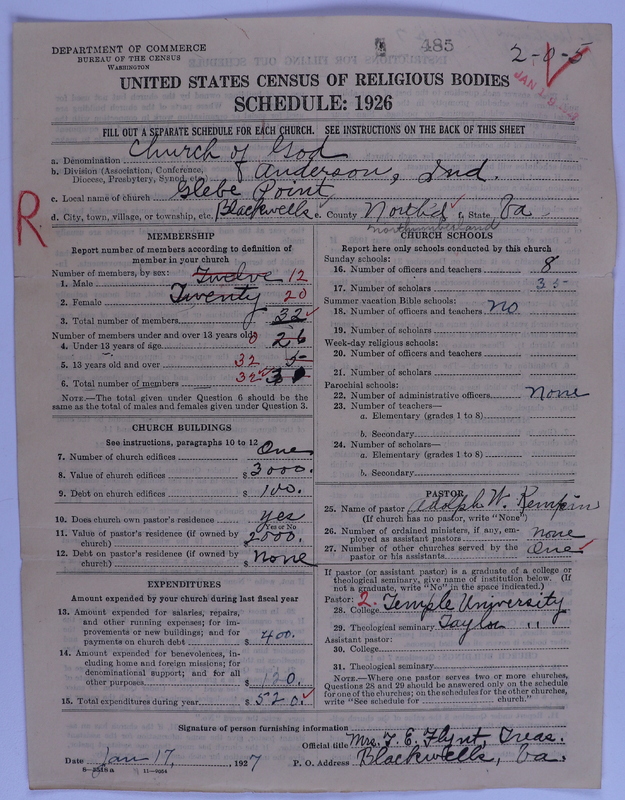 485
2-0-5
DEPARTMENT OF COMMERCE
BUREAU OF THE CENSUS
WASHINGTON
UNITED STATES CENSUS OF RELIGIOUS BODIES
SCHEDULE: 1926
FILL OUT A SEPARATE SCHEDULE FOR EACH CHURCH. SEE INSTRUCTIONS ON THE BACK OF THIS SHEET
a. Denomination Church of God
b. Division (Association, Conference, Diocese, Presbytery, Synod, etc.) Anderson, Ind.
c. Local name of church Glebe Point
R
d. City, town, village, or township, etc. Blackwells e. County North'd f. State, Va
Northumberland
MEMBERSHIP
Report number of members according to definition of
member in your church
Number of members, by sex:
1. Male Twelve 12
2. Female Twenty 20
3. Total number of members 32
Number of members under and over 13 years old:
4. Under 13 years of age 0 26
5. 13 years old and over 32 5
6. Total number of members 32
NOTE.—The total given under Question 6 should be the
same as the total of males and females given under Question 3.
CHURCH BUILDINGS
See instructions, paragraphs 10 to 12
7. Number of church edifices One
8. Value of church edifices $ 3000.
9. Debt on church edifices $ 100.
10. Does church own pastor's residence yes
Yes or No
11. Value of pastor's residence (if owned by
church) $ 2000.
12. Debt on pastor's residence (if owned by
church) $ None
EXPENDITURES
Amount expended by your church during last fiscal year
13. Amount expended for salaries, repairs,
and other running expenses; for im-
provements or new buildings; and for
payments on church debt $ 400.
14. Amount expended for benevolences, in-
cluding home and foreign missions; for
denominational support; and for all
other purposes $ 120.
15. Total expenditures during year $ 520.
CHURCH SCHOOLS
Report here only schools conducted by this church
Sunday schools:
16. Number of officers and teachers 8
17. Number of scholars 35
Summer vacation Bible schools:
18. Number of officers and teachers no
19. Number of scholars
Week-day religious schools:
20. Number of officers and teachers
21. Number of scholars
Parochial schools:
22. Number of administrative officers none
23. Number of teachers—
a. Elementary (grades 1 to 8)
b. Secondary
24. Number of scholars—
a. Elementary (grades 1 to 8)
b. Secondary
PASTOR
25. Name of pastor Adolph W. Kempin
(If church has no pastor, write "None")
26. Number of ordained ministers, if any, em-
ployed as assistant pastors none
27. Number of other churches served by the
pastor or his assistants One
If pastor (or assistant pastor) is a graduate of a college or
theological seminary, give name of institution below. (If
not a graduate, write "No" in the space indicated.)
Pastor: 2.
28. College Temple University
29. Theological seminary Taylor "
Assistant pastor:
30. College
31. Theological seminary
NOTE.—Where one pastor serves two or more churches,
Questions 28 and 29 should be answered only on the schedule
for one of the churches; on the schedules for the other churches,
write "See schedule for church."
Signature of person furnishing information
Official title Mrs. F. E. Flynt, Treas.
Date Jan 17, 1927 P. O. Address Blackwells, Va.
11—9064